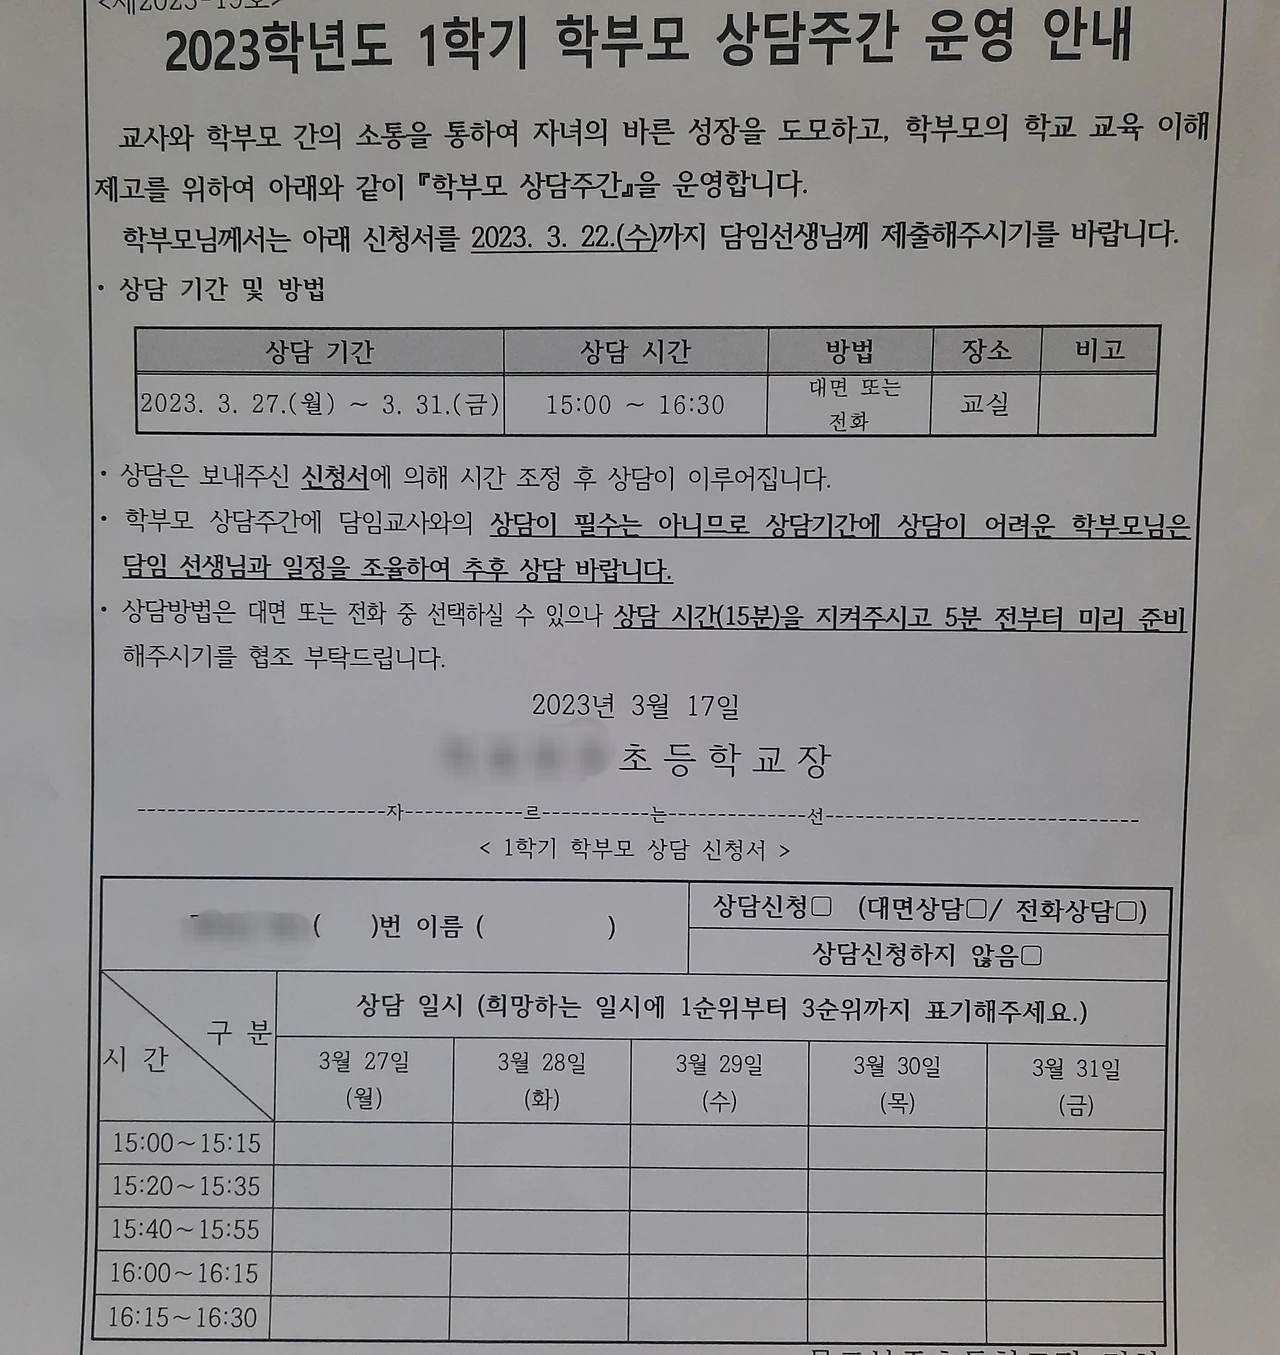 <제2023-15호>
2023학년도 1학기 학부모 상담주간 운영 안내
교사와 학부모 간의 소통을 통하여 자녀의 바른 성장을 도모하고, 학부모의 학교 교육 이해
제고를 위하여 아래와 같이 『학부모 상담주간』을 운영합니다.
학부모님께서는 아래 신청서를 2023. 3. 22.(수)까지 담임선생님께 제출해주시기를 바랍니다.
· 상담 기간 및 방법
상담 기간 상담 시간 방법 장소 비고
2023. 3. 27.(월) ~ 3. 31.(금) 15:00 ~ 16:30 대면 또는 전화 교실
· 상담은 보내주신 신청서에 의해 시간 조정 후 상담이 이루어집니다.
· 학부모 상담주간에 담임교사와의 상담이 필수는 아니므로 상담기간에 상담이 어려운 학부모님은
담임 선생님과 일정을 조율하여 추후 상담 바랍니다.
· 상담방법은 대면 또는 전화 중 선택하실 수 있으나 상담 시간(15분)을 지켜주시고 5분 전부터 미리 준비
해주시기를 협조 부탁드립니다.
2023년 3월 17일
초등학교장
자 르 는 선
< 1학기 학부모 상담 신청서 >
( )번 이름 ( ) 상담신청□ (대면상담□/ 전화상담□)
상담신청하지 않음□
구 분
시 간
상담 일시 (희망하는 일시에 1순위부터 3순위까지 표기해주세요.)
3월 27일 3월 28일 3월 29일 3월 30일 3월 31일
(월) (화) (수) (목) (금)
15:00~15:15
15:20~15:35
15:40~15:55
16:00~16:15
16:15~16:30